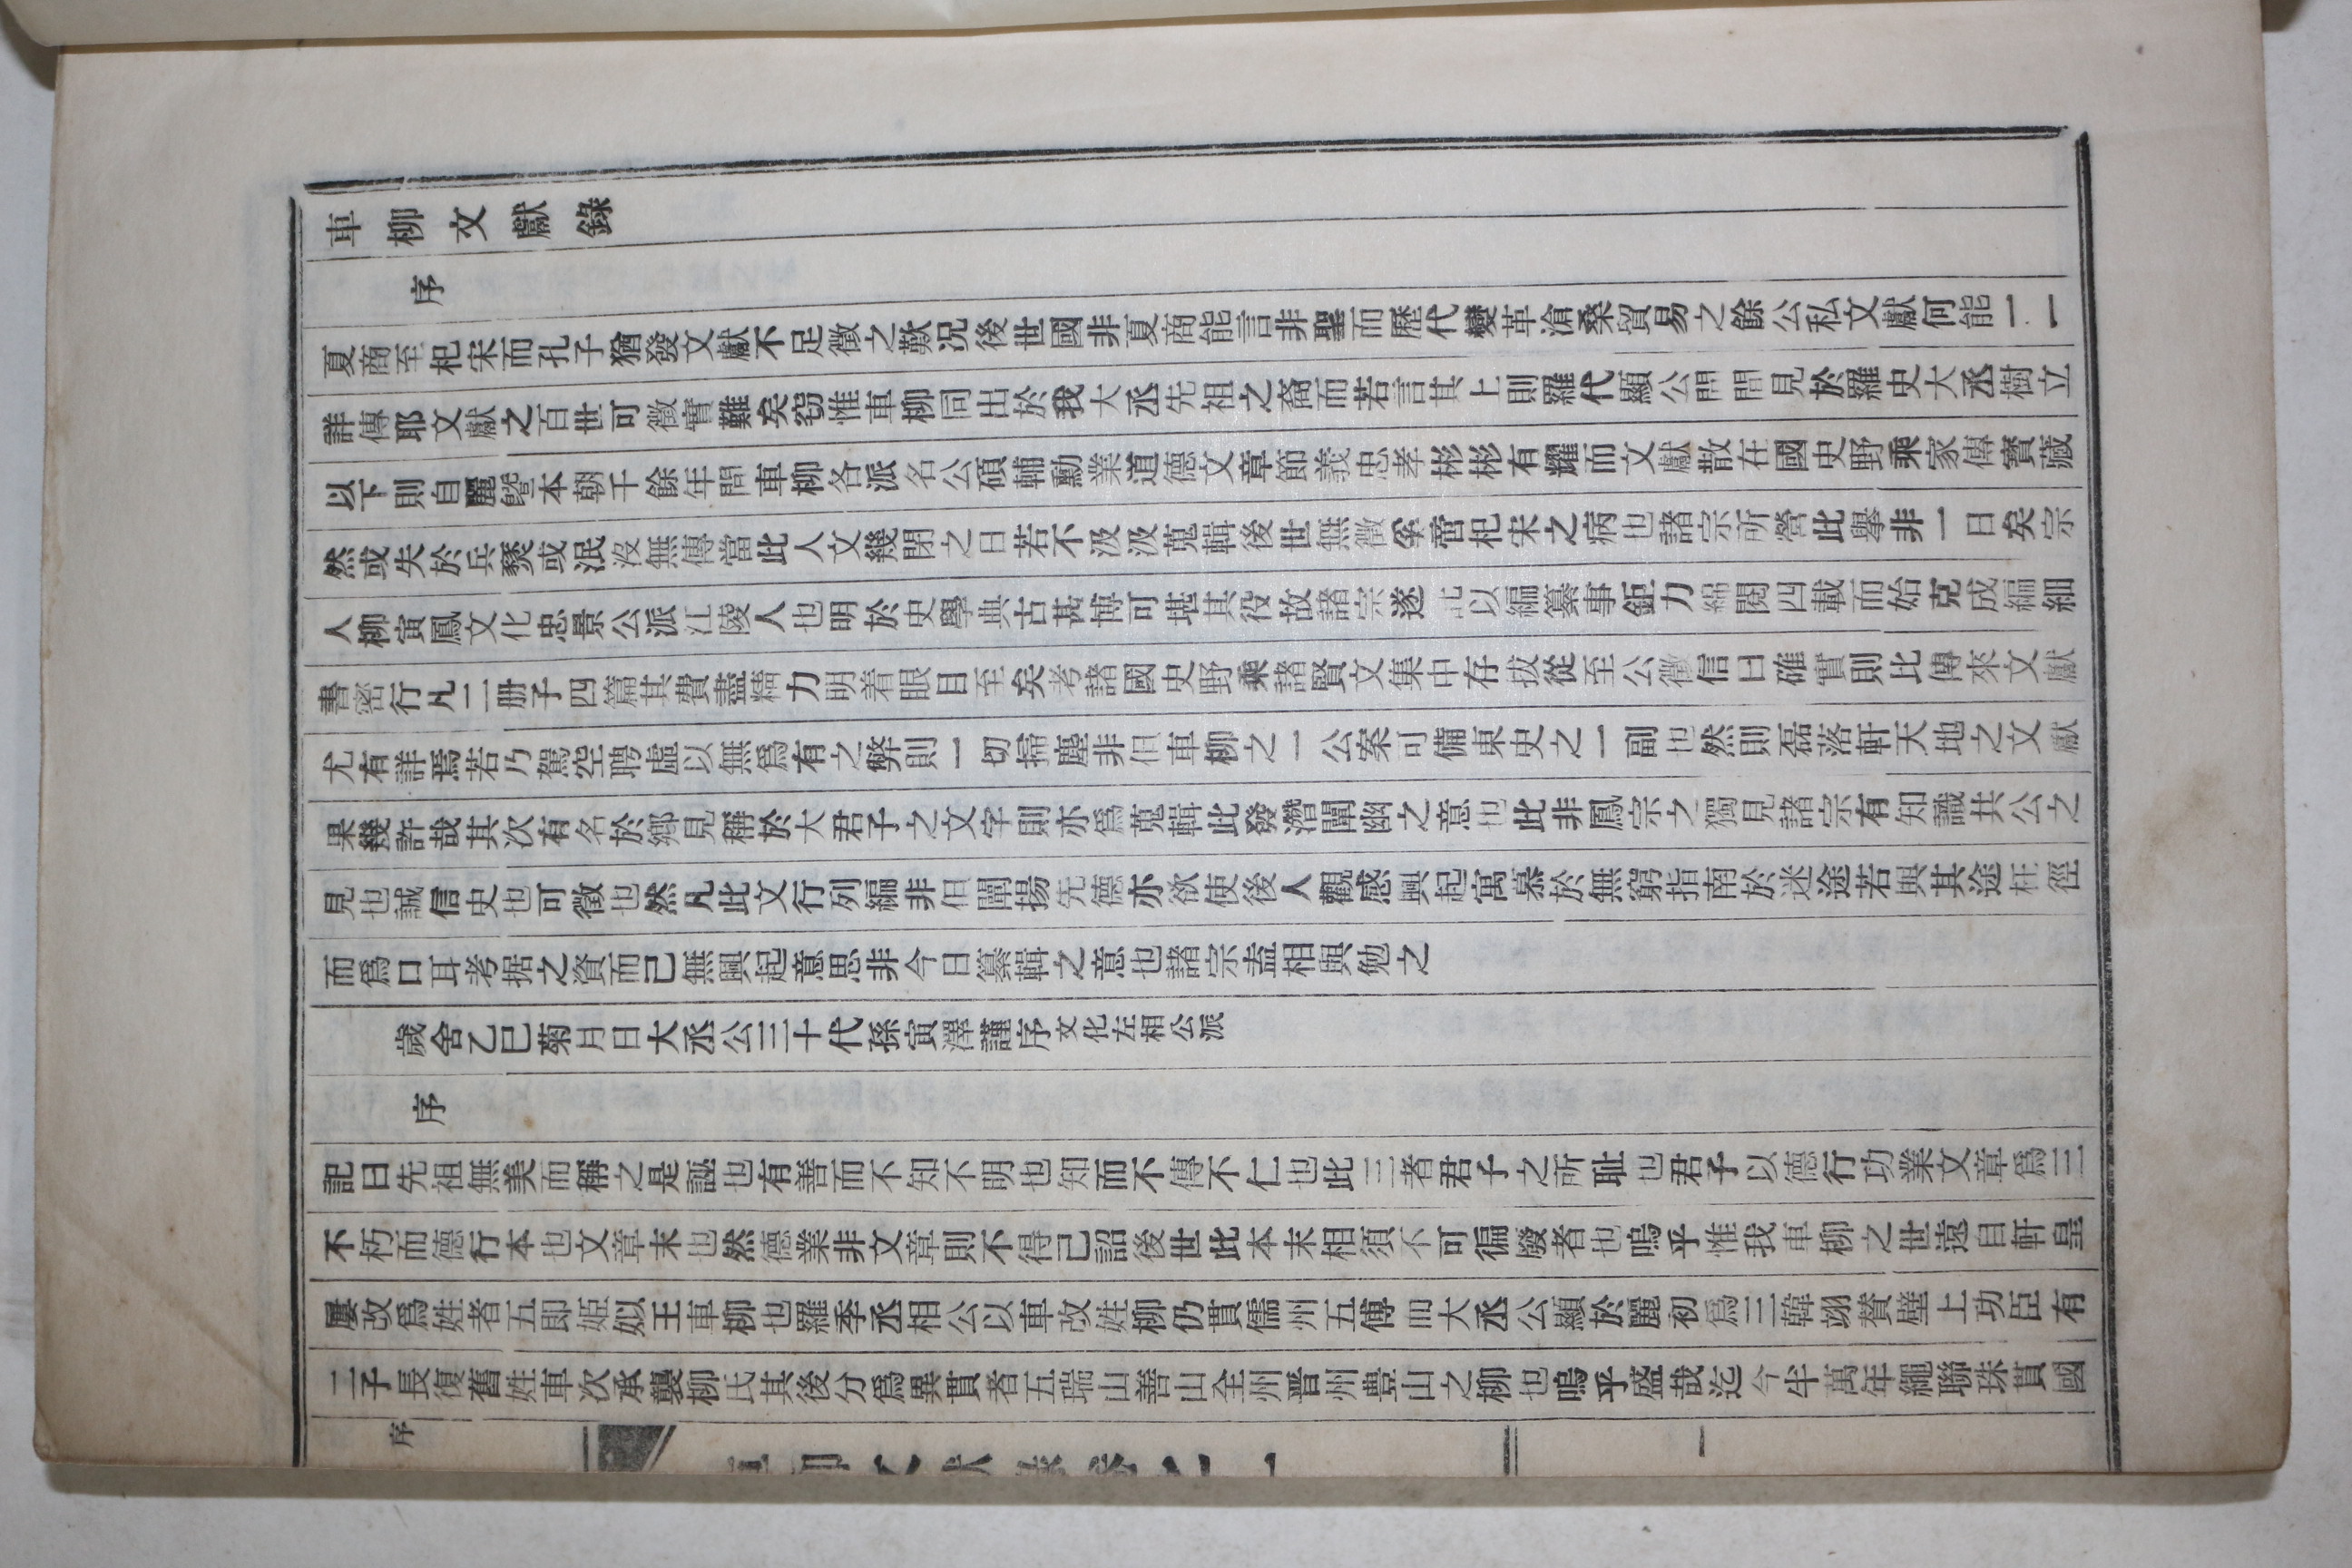 車柳文獻錄
序
夏商至杞宋而孔子猶發文獻不足徵之歎况後世國非夏商能言非聖而歷代變革滄桑貿易之餘公私文獻何能一一
詳傳耶文獻之百世可徵實難矣窃惟車柳同出於我大丞先祖之裔而若言其上則羅代顯公間間見於羅史大丞樹立
以下則自麗曁本朝千餘年間車柳各派名公碩輔勳業道德文章節義忠孝彬彬有耀而文獻散在國史野乘家傳寶藏
然或失於兵燹或泯沒無傳當此人文幾閉之日若不汲汲蒐輯後世無徵奚啻杞宋之病也諸宗所營此擧非一日矣宗
人柳寅鳳文化忠景公派江陵人也明於史學典古甚博可堪其役故諸宗遂 以編纂事鉅力綿閱四載而始克成編細
書密行凡二册子四篇其費盡精力明着眼目至矣考諸國史野乘諸賢文集中存拔從至公徵信曰確實則比傳來文獻
尤有詳焉若乃駕空聘虛以無爲有之弊則一切掃塵非但車柳之一公案可備東史之一副也然則磊落軒天地之文獻
果幾許哉其次有名於鄕見稱於大君子之文字則亦爲蒐輯此發潛闡幽之意也此非鳳宗之獨見諸宗有知識共公之
見也誠信史也可徵也然凡此文行列編非但闡揚先德亦欲使後人觀感興起寓慕於無窮指南於迷途若興其途枉徑
而爲口耳考据之資而己無興起意思非今日纂輯之意也諸宗盍相與勉之
歲舍乙巳菊月日大丞公三十代孫寅澤謹序文化左相公派
序
記曰先祖無美而稱之是誣也有善而不知不明也知而不傳不仁也此三者君子之所耻也君子以德行功業文章爲三
不朽而德行本也文章末也然德業非文章則不得己詔後世此本末相須不可徧廢者也嗚乎惟我車柳之世遠自軒皇
屢改爲姓者五即姬姒王車柳也羅季丞相公以車改姓柳仍貫儒州五傳 大丞公顯於麗初爲三韓翊贊壁上功臣有
二子長復舊姓車次承襲柳氏其後分爲異貫者五瑞山善山全州晋州豊山之柳也嗚乎盛哉迄今半萬年繩聯珠貫國
序